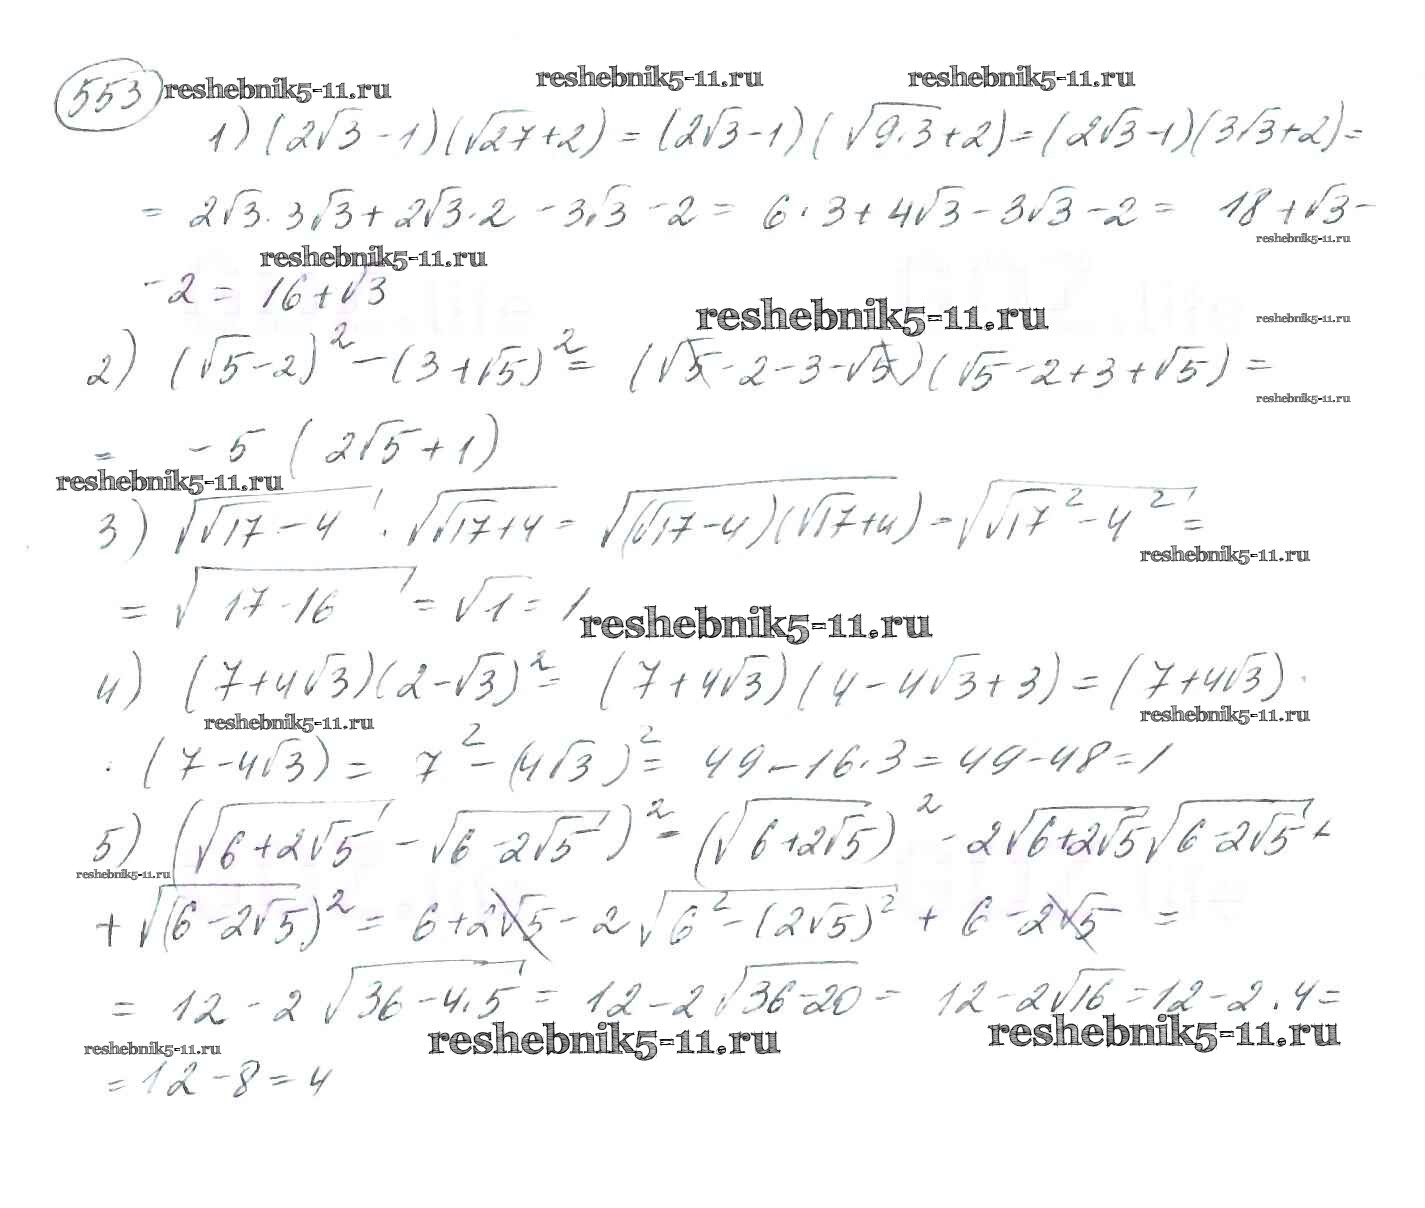 553 reshebnik5-11.ru reshebnik5-11.ru reshebnik5-11.ru
1) (2√3 - 1)(√27 + 2) = (2√3 - 1)(√9·3 + 2) = (2√3 - 1)(3√3 + 2) =
= 2√3 · 3√3 + 2√3 · 2 - 3√3 - 2 = 6 · 3 + 4√3 - 3√3 - 2 = 18 + √3 -
reshebnik5-11.ru
reshebnik5-11.ru
- 2 = 16 + √3
reshebnik5-11.ru reshebnik5-11.ru
2) (√5 - 2)² - (3 + √5)² = (√5 - 2 - 3 - √5)(√5 - 2 + 3 + √5) =
reshebnik5-11.ru
= - 5 (2√5 + 1)
reshebnik5-11.ru
3) √(√17 - 4) · √(√17 + 4) = √((√17 - 4)(√17 + 4)) = √(√17² - 4²) =
reshebnik5-11.ru
= √(17 - 16) = √1 = 1
reshebnik5-11.ru
4) (7 + 4√3)(2 - √3)² = (7 + 4√3)(4 - 4√3 + 3) = (7 + 4√3) ·
reshebnik5-11.ru reshebnik5-11.ru
· (7 - 4√3) = 7² - (4√3)² = 49 - 16 · 3 = 49 - 48 = 1
5) (√(6 + 2√5) - √(6 - 2√5))² = (√(6 + 2√5))² - 2√(6 + 2√5)√(6 - 2√5) +
reshebnik5-11.ru
+ √(6 - 2√5)² = 6 + 2√5 - 2√(6² - (2√5)²) + 6 - 2√5 =
= 12 - 2√(36 - 4·5) = 12 - 2√(36 - 20) = 12 - 2√16 = 12 - 2 · 4 =
reshebnik5-11.ru reshebnik5-11.ru reshebnik5-11.ru
= 12 - 8 = 4